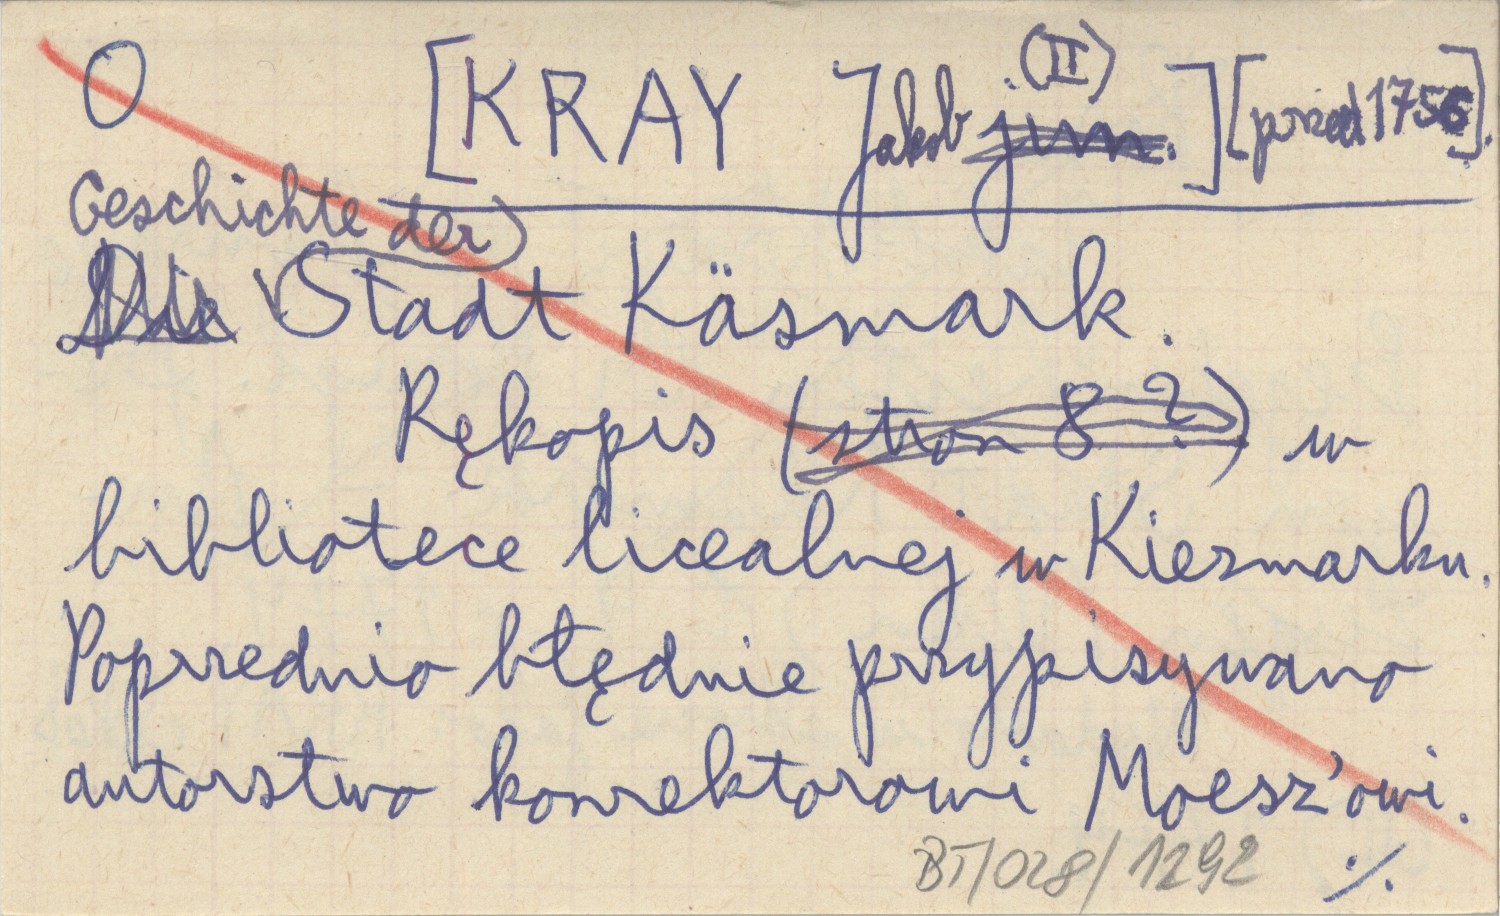 O [KRAY Jakob (II) junn.] [przed 1756].
Geschichte der
Die Stadt Käsmark.
Rękopis (stron 8?) w
bibliotece licealnej w Kiezmarku.
Poprzednio błędnie przypisywano
autorstwo konrektorowi Moesz'owi.
BT/028/1292 ·/.